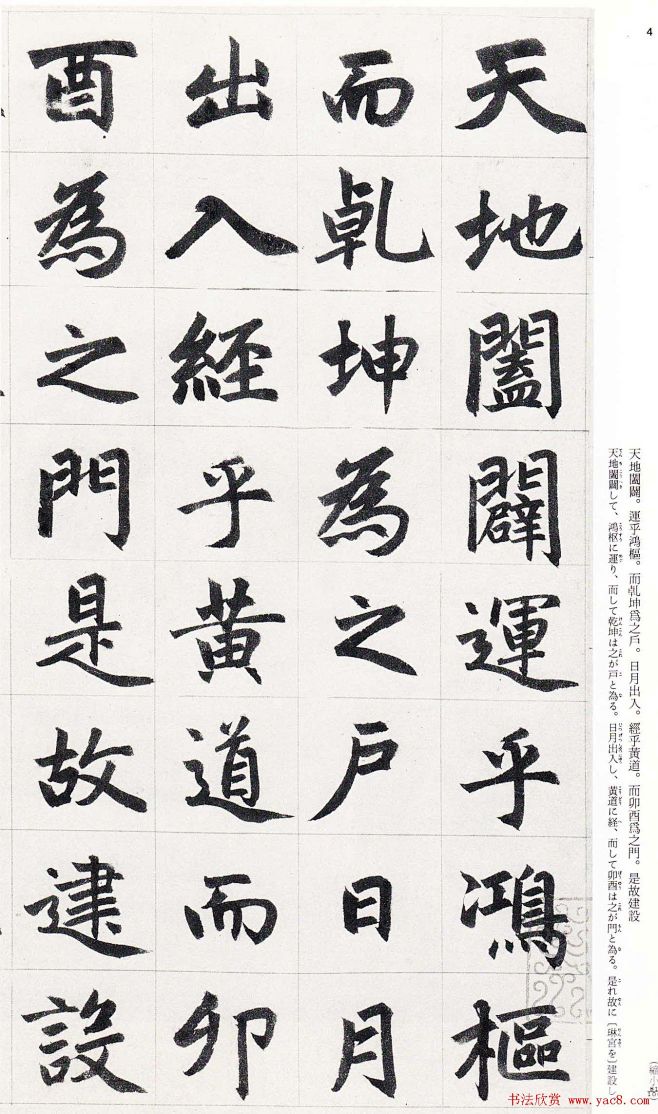 4
天地闔闢運乎鴻樞
而乹坤為之戶日月
出入經乎黃道而卯
酉為之門是故建設
天地闔闢。運乎鴻樞。而乹坤爲之戶。日月出入。經乎黃道。而卯酉爲之門。是故建設
天地闔闢して、鴻枢に運り、而して乾坤は之が戸と為る。日月出入し、黄道に経、而して卯酉は之が門と為る。是れ故に〔琳宮を〕建設し
书法欣赏 www.yac8.com